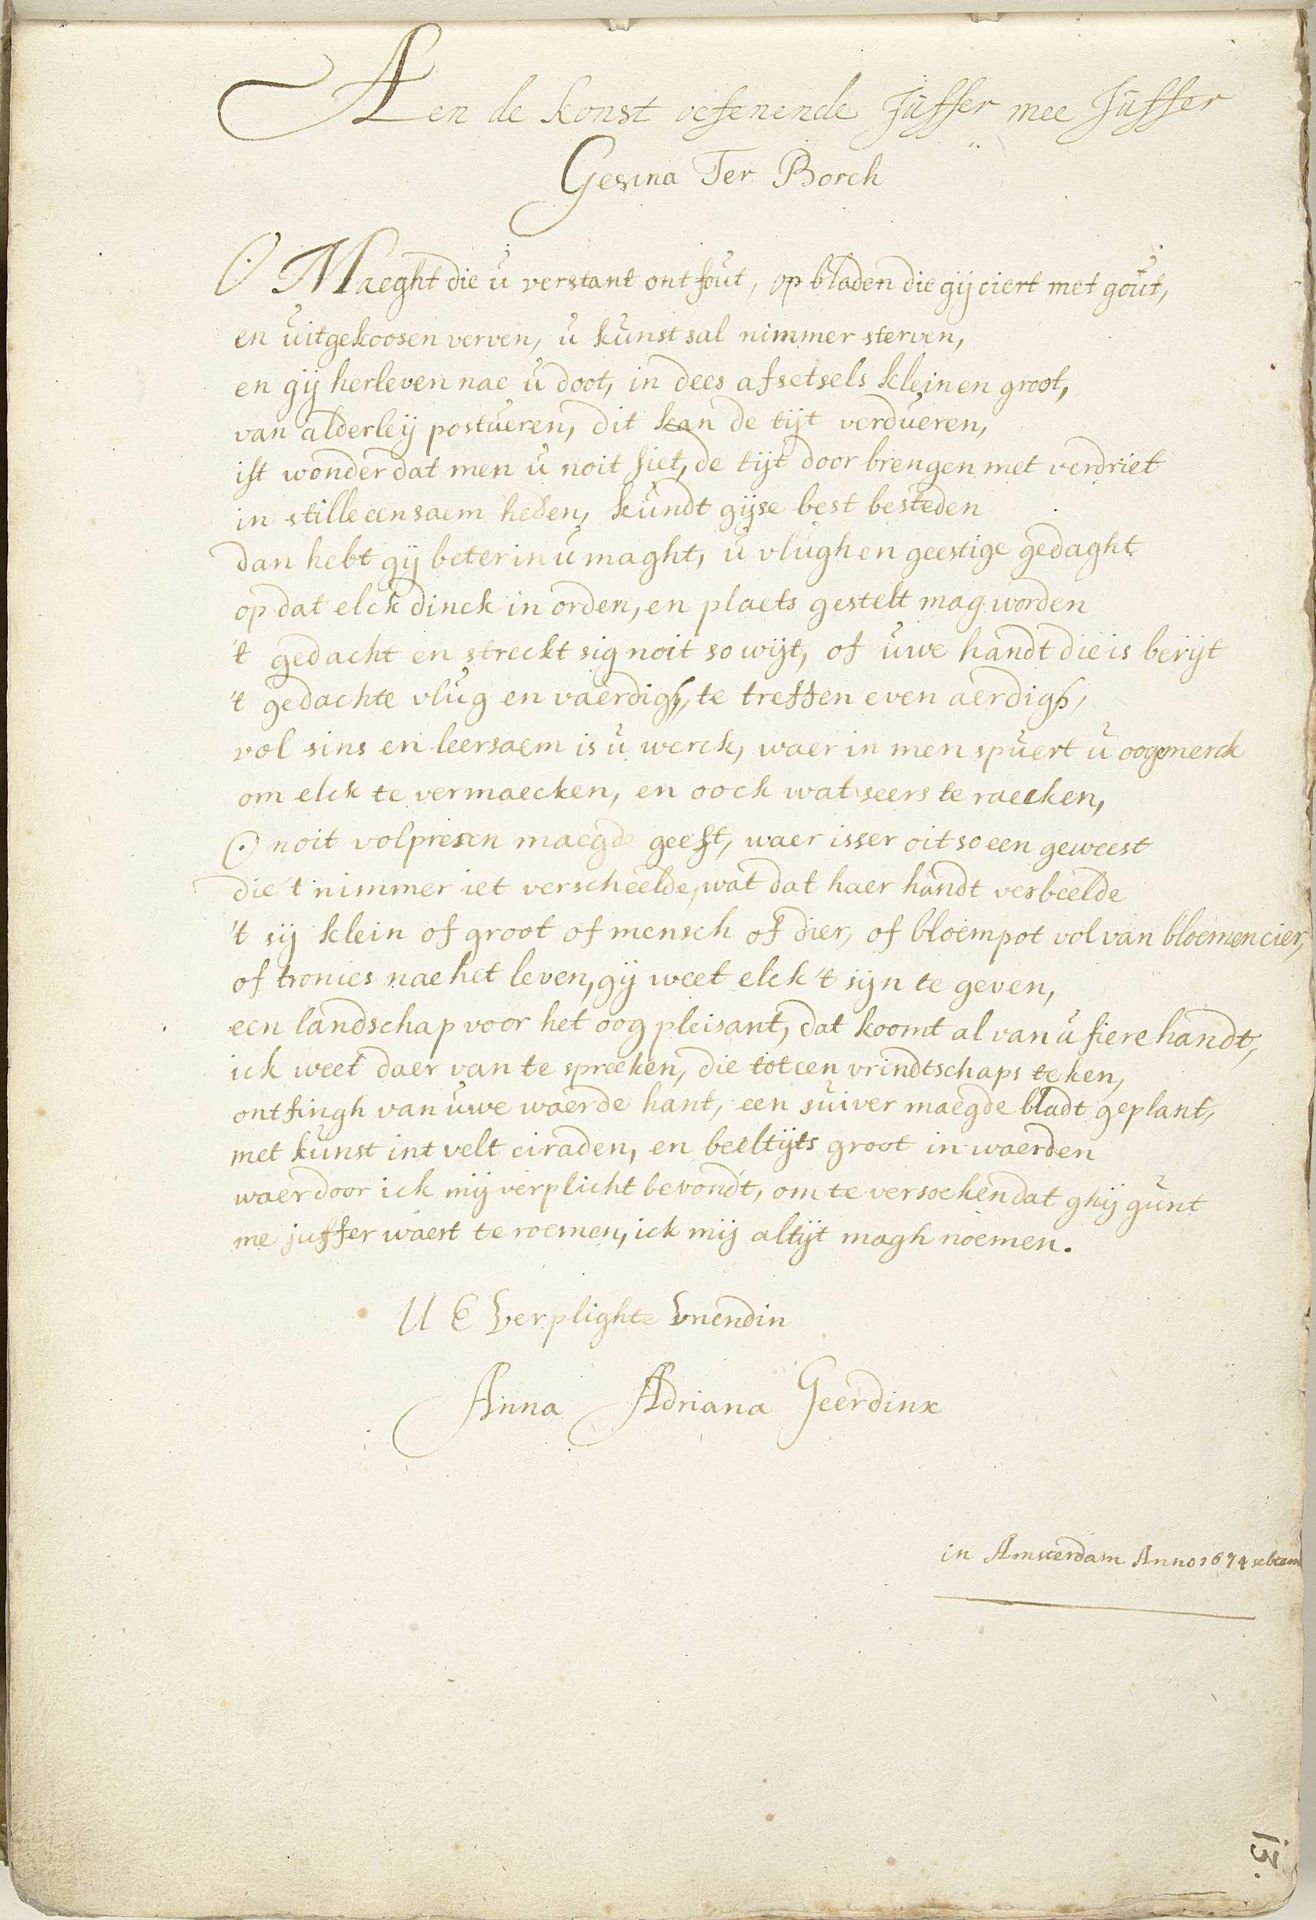 Aen de konst oefenende Juffer mee Juffer
Gesina Ter Borch
O Maeght die u verstant ontfout, op bladen die gij ciert met gout,
en uitgekoosen verven, u kunst sal nimmer sterven,
en gij herleven nae u doot, in dees afsetsels klein en groot,
van alderleij postueren, dit kan de tijt verdueren,
ist wonder dat men u noit siet, de tijt door brengen met verdriet
in stille eensaem heden, kundt gijse best besteden
dan hebt gij beter in u maght, u vlugh en geestige gedaght
op dat elck dinck in orden, en plaets gestelt mag worden
't gedacht en streckt sig noit so wijt, of uwe handt die is berijt
't gedachte vlug en vaerdigh, te treffen even aerdigh,
vol sins en leersaem is u werck, waer in men spuert u oogemerck
om elck te vermaecken, en oock wat seers te raecken,
O noit volpresen maegde geest, waer isser oit so een geweest
die 't nimmer iet verscheelde, wat dat haer handt verbeelde
't sij klein of groot of mensch of dier, of bloempot vol van bloemen cier,
of tronies nae het leven, gij weet elck 't sijn te geven,
een landschap voor het oog pleisant, dat koomt al van u fiere handt,
ick weet daer van te spreeken, die tot een vrindtschaps teken,
ontfingh van uwe waerde hant, een suiver maegde bladt geplant,
met kunst int velt ciraden, en beeltijts groot in waerden
waer door ick mij verplicht bevondt, om te versoeken dat ghij gunt
me juffer waert te roemen, ick mij altijt magh noemen.
U E Verplighte Vriendin
Anna Adriana Geerdinx
in Amsterdam Anno 1674 sebtem
13.